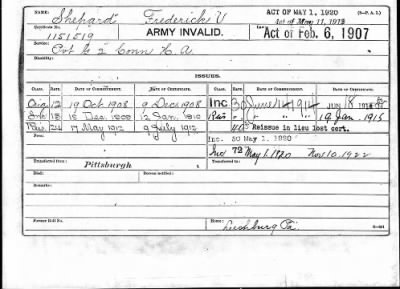 NAME: Shepard Frederick V ACT OF MAY 1, 1920 (S-P. A. 1)
Act of May 11, 1912
CERTIFICATE: 1151519 ARMY INVALID. Act of Feb. 6, 1907
Service: Pvt G 2 Conn H. A.
ISSUES.
CLASS. RATE. DATE OF COMMENCEMENT. DATE OF CERTIFICATE. CLASS. RATE. DATE OF COMMENCEMENT. DATE OF CERTIFICATE.
Orig 12 19 Oct 1908 9 Dec 1908 Inc 30 June 14 1914 JUN 18 1914
Inc 15 15 Dec 1909 12 Jan 1910 Reis " " " 19 Jan 1915
Reis 24 17 May 1912 9 July 1912 Reissue in lieu lost cert.
From: Inc. 50 May 1. 1920
Inc 72 May 1. 1920 Nov 10. 1922
Transferred from Pittsburgh
Transferred to: Bureau notified:
Former Roll No. Home: Leechburg Pa.